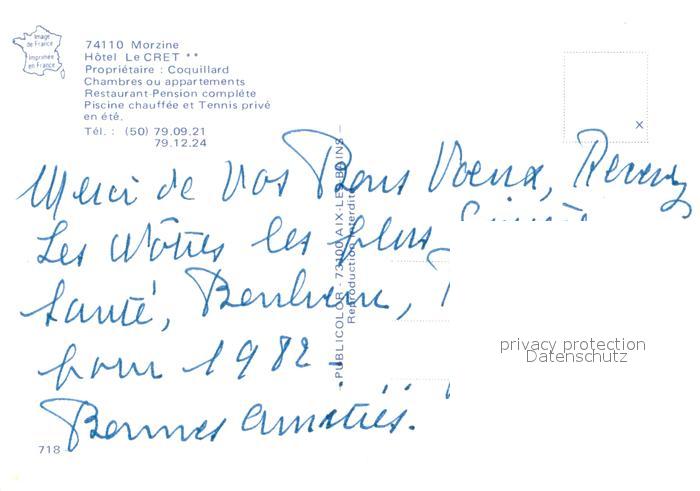 Image
de France
Imprimée
en France
74110 Morzine
Hôtel Le CRET **
Propriétaire : Coquillard
Chambres ou appartements
Restaurant-Pension complète
Piscine chauffée et Tennis privé
en été.
Tél. : (50) 79.09.21
79.12.24
x
PUBLICOLOR - 73100 AIX-LES-BAINS -
Reproduction interdite
Merci de Vos Bons Voeux, Recevez
Les Nôtres les plus
Santé, Bonheur,
pour 1982 !
Bonnes Amitiés.
privacy protection
Datenschutz
718